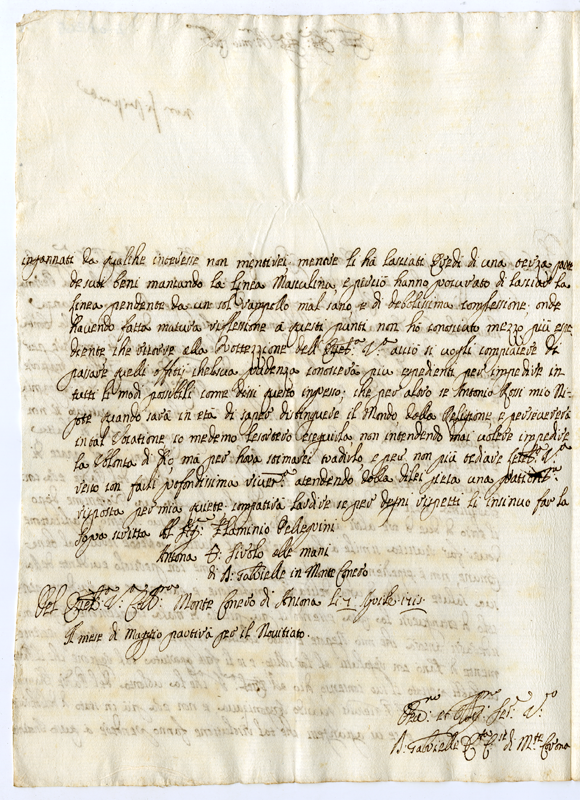 ingannati da qualche interesse non mentirei mentre li ha lasciati Eredi di una terza parte
de suoi beni mancando la Linea Masculina, e perciò hanno procurato di lasciar la
linea pendente da un sol rampollo mal sano, e di debolissima complessione; onde
havendo fatta matura riflessione à questi punti non hò conosciuto mezzo più espe-
diente, che ricorre alla Prottezzione dell' V. acciò si vogli compiacere di
passare quelli offitij che sua prudenza conoscerà più espedienti per impedire in
tutti li modi possibili come dissi questo ingresso; che per altro se Antonio Rossi mio Ni-
pote quando sarà in età di saper distinguere il Mondo dalla Religione, e persevererà
in tal Vocatione io medemo l'esorterò eseguirla non intendendo mai volere impedire
la Volontà di Dio, ma per hora stimarei tradirlo, e per non più tediare
resto con farli profondissima river.za attendendo dalla di lei pietà una
risposta per mia quiete; compatirà l'ardire se per degni rispetti li insinuo far la
sopra scritta Al Sig. Flaminio Pellegrini
Ancona P. Sirolo alle mani
di D. Gabrielle in Monte Conero
Dell' V. Monte Conero di Ancona Li 7 Aprile 1715
Il mese di Maggio partirà per il Novitiato.
Ser. V.
D. Gabrielle di M.te Corona